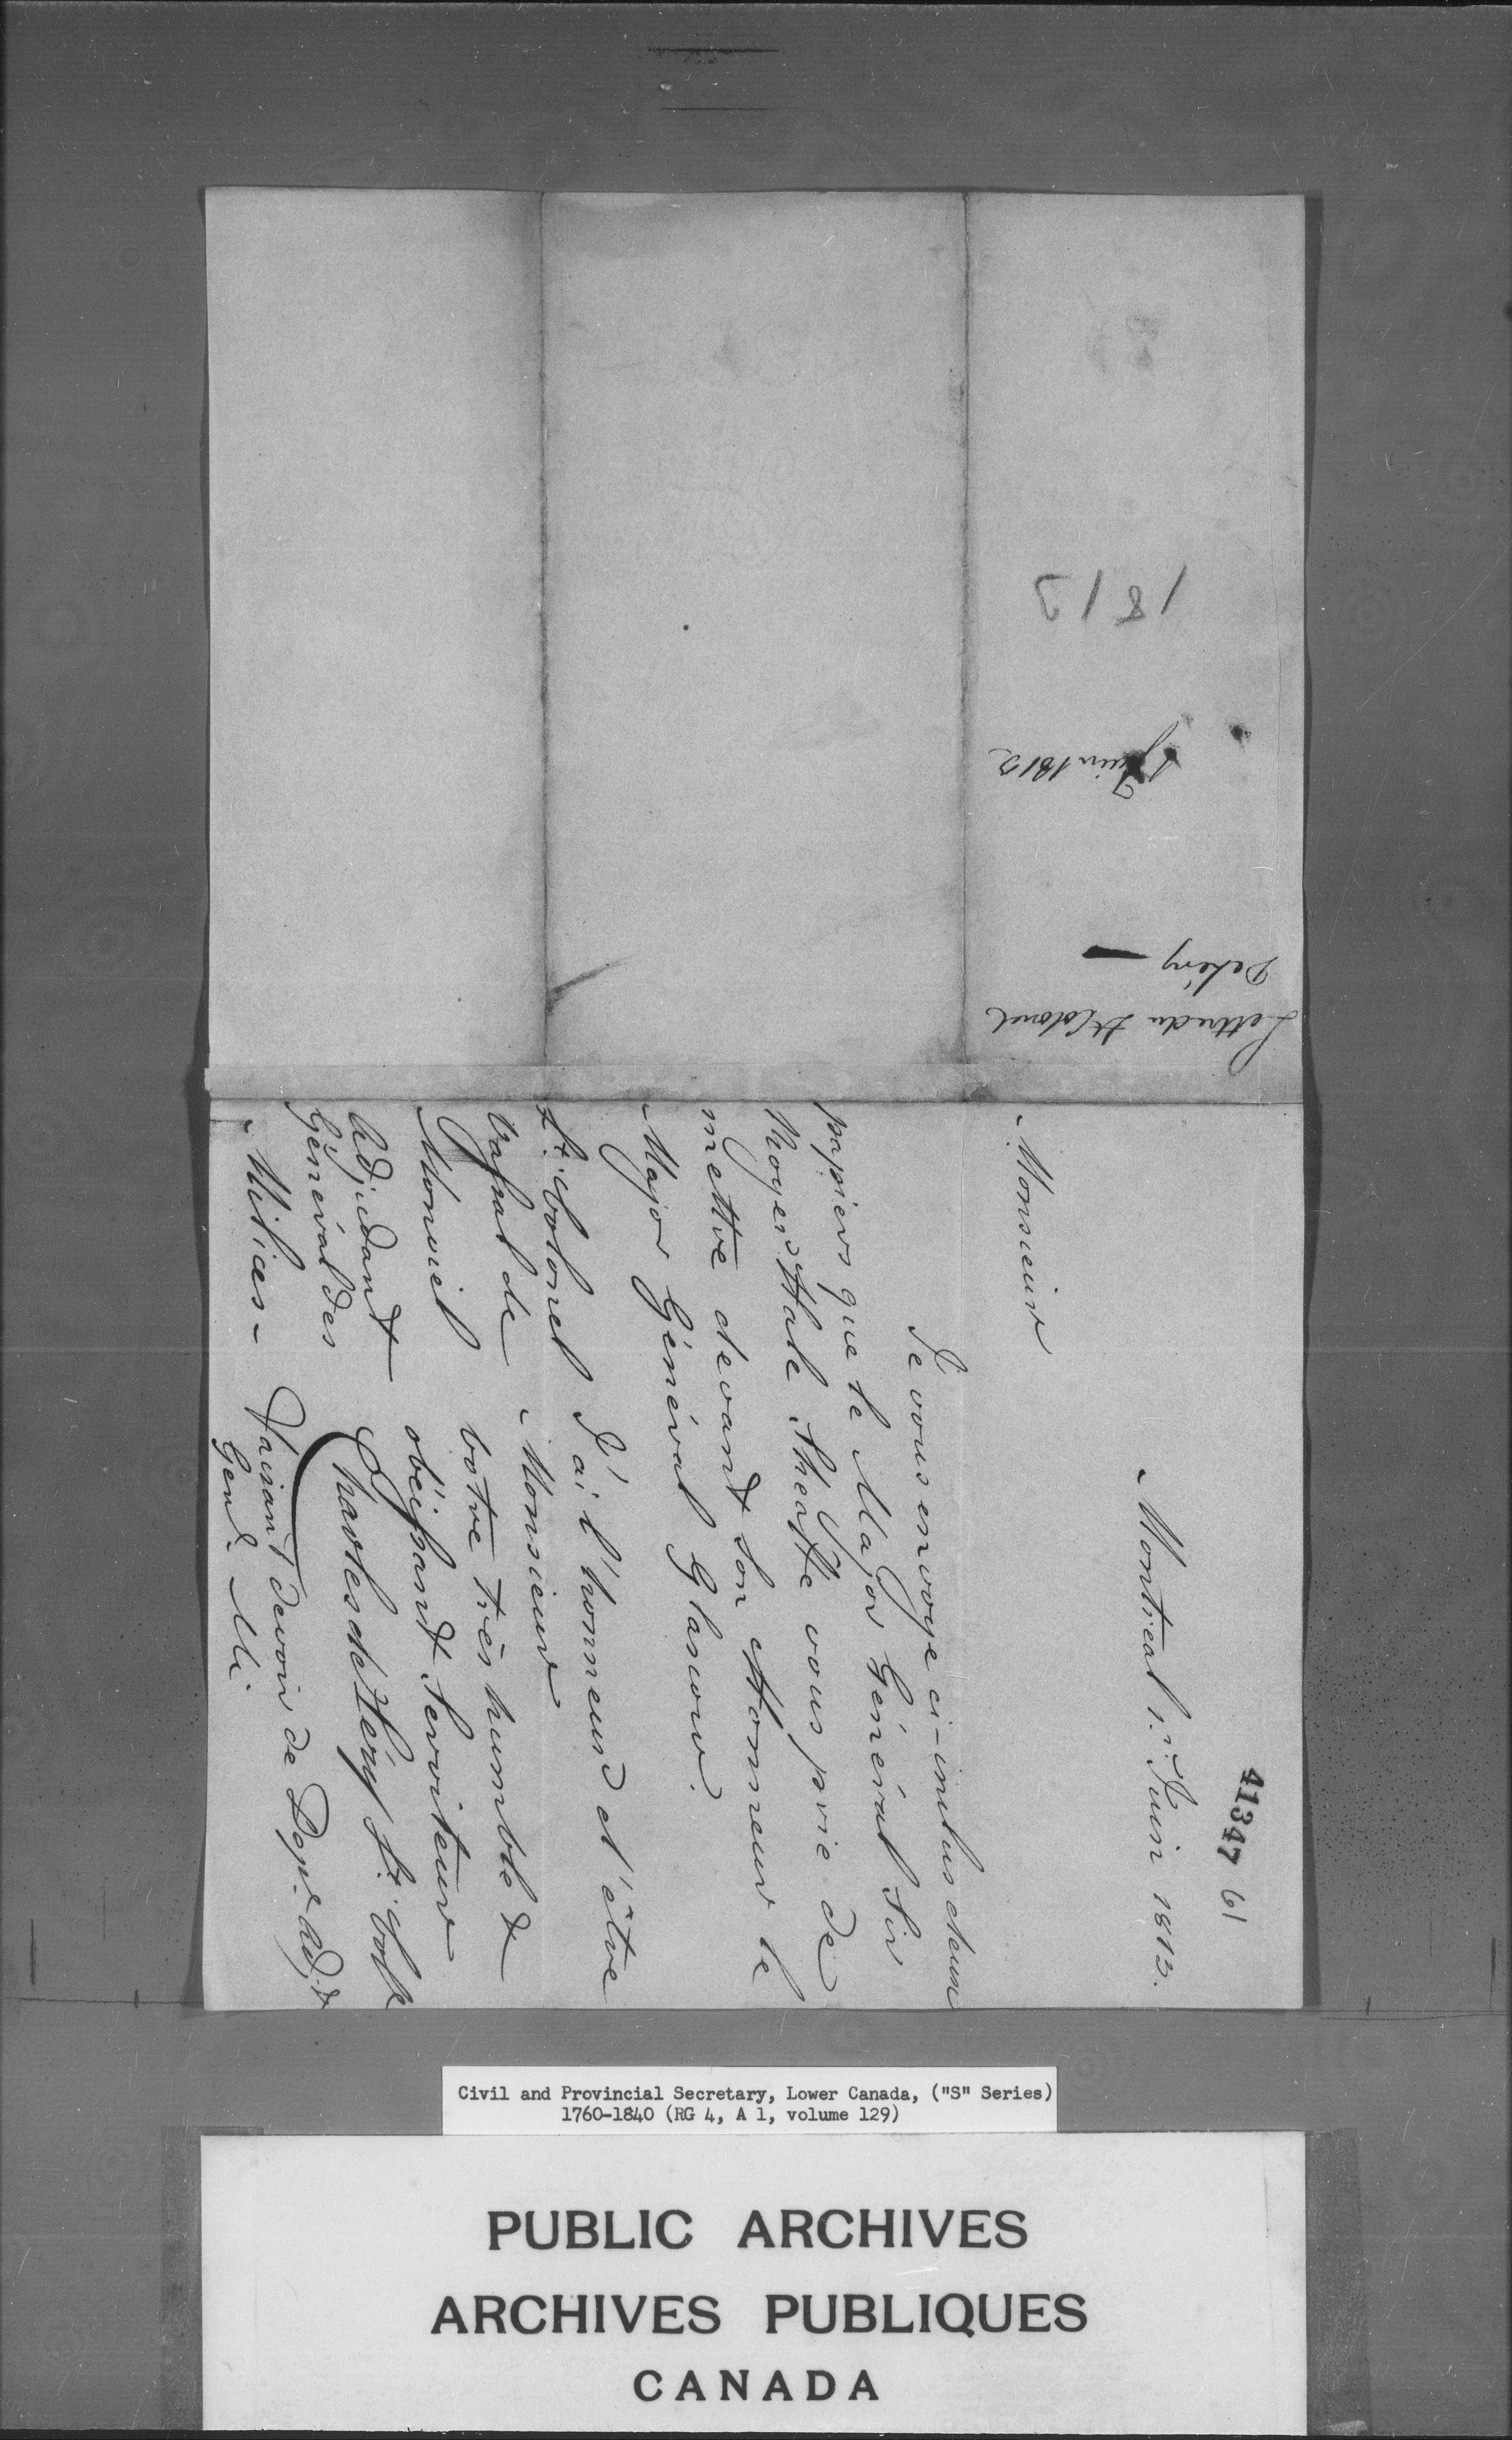 41347 61
Montreal 1er. Juin 1813.
Monsieur
Je vous envoye ci-inclus deux
papiers que le Major Général Sir
Roger Hale Sheaffe vous prie de
mettre devant Son Honneur le
Major Général Glascow.
J'ai l'honneur d'être
Monsieur
votre très humble &
obéissant Serviteur
Charles de Léry Lt. Coll
Faisant devoir de Dept. Adjt
Genl. Mi.
Lt. Colonel
Vassal de
Monviel
Adjudant
Général des
Milices-
Lettre du Lt Colonel
Deléry —
1 Juin 1813
1813
Civil and Provincial Secretary, Lower Canada, ("S" Series)
1760-1840 (RG 4, A 1, volume 129)
PUBLIC ARCHIVES
ARCHIVES PUBLIQUES
CANADA